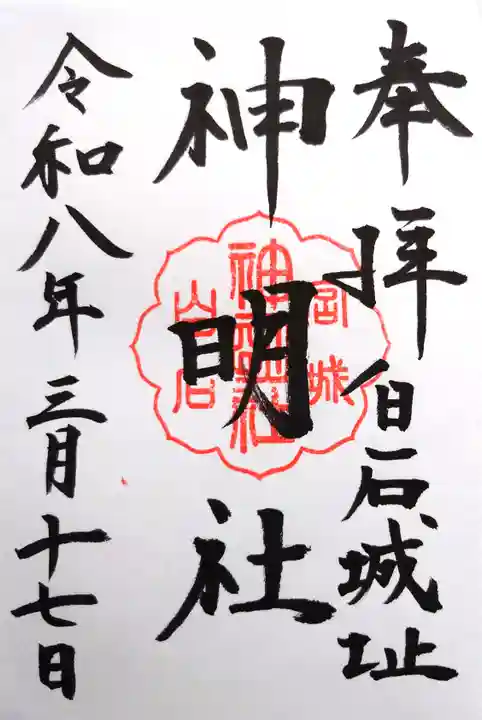 奉拝 白石城址
神明社
令和八年三月十七日
宮城
神明社
白石